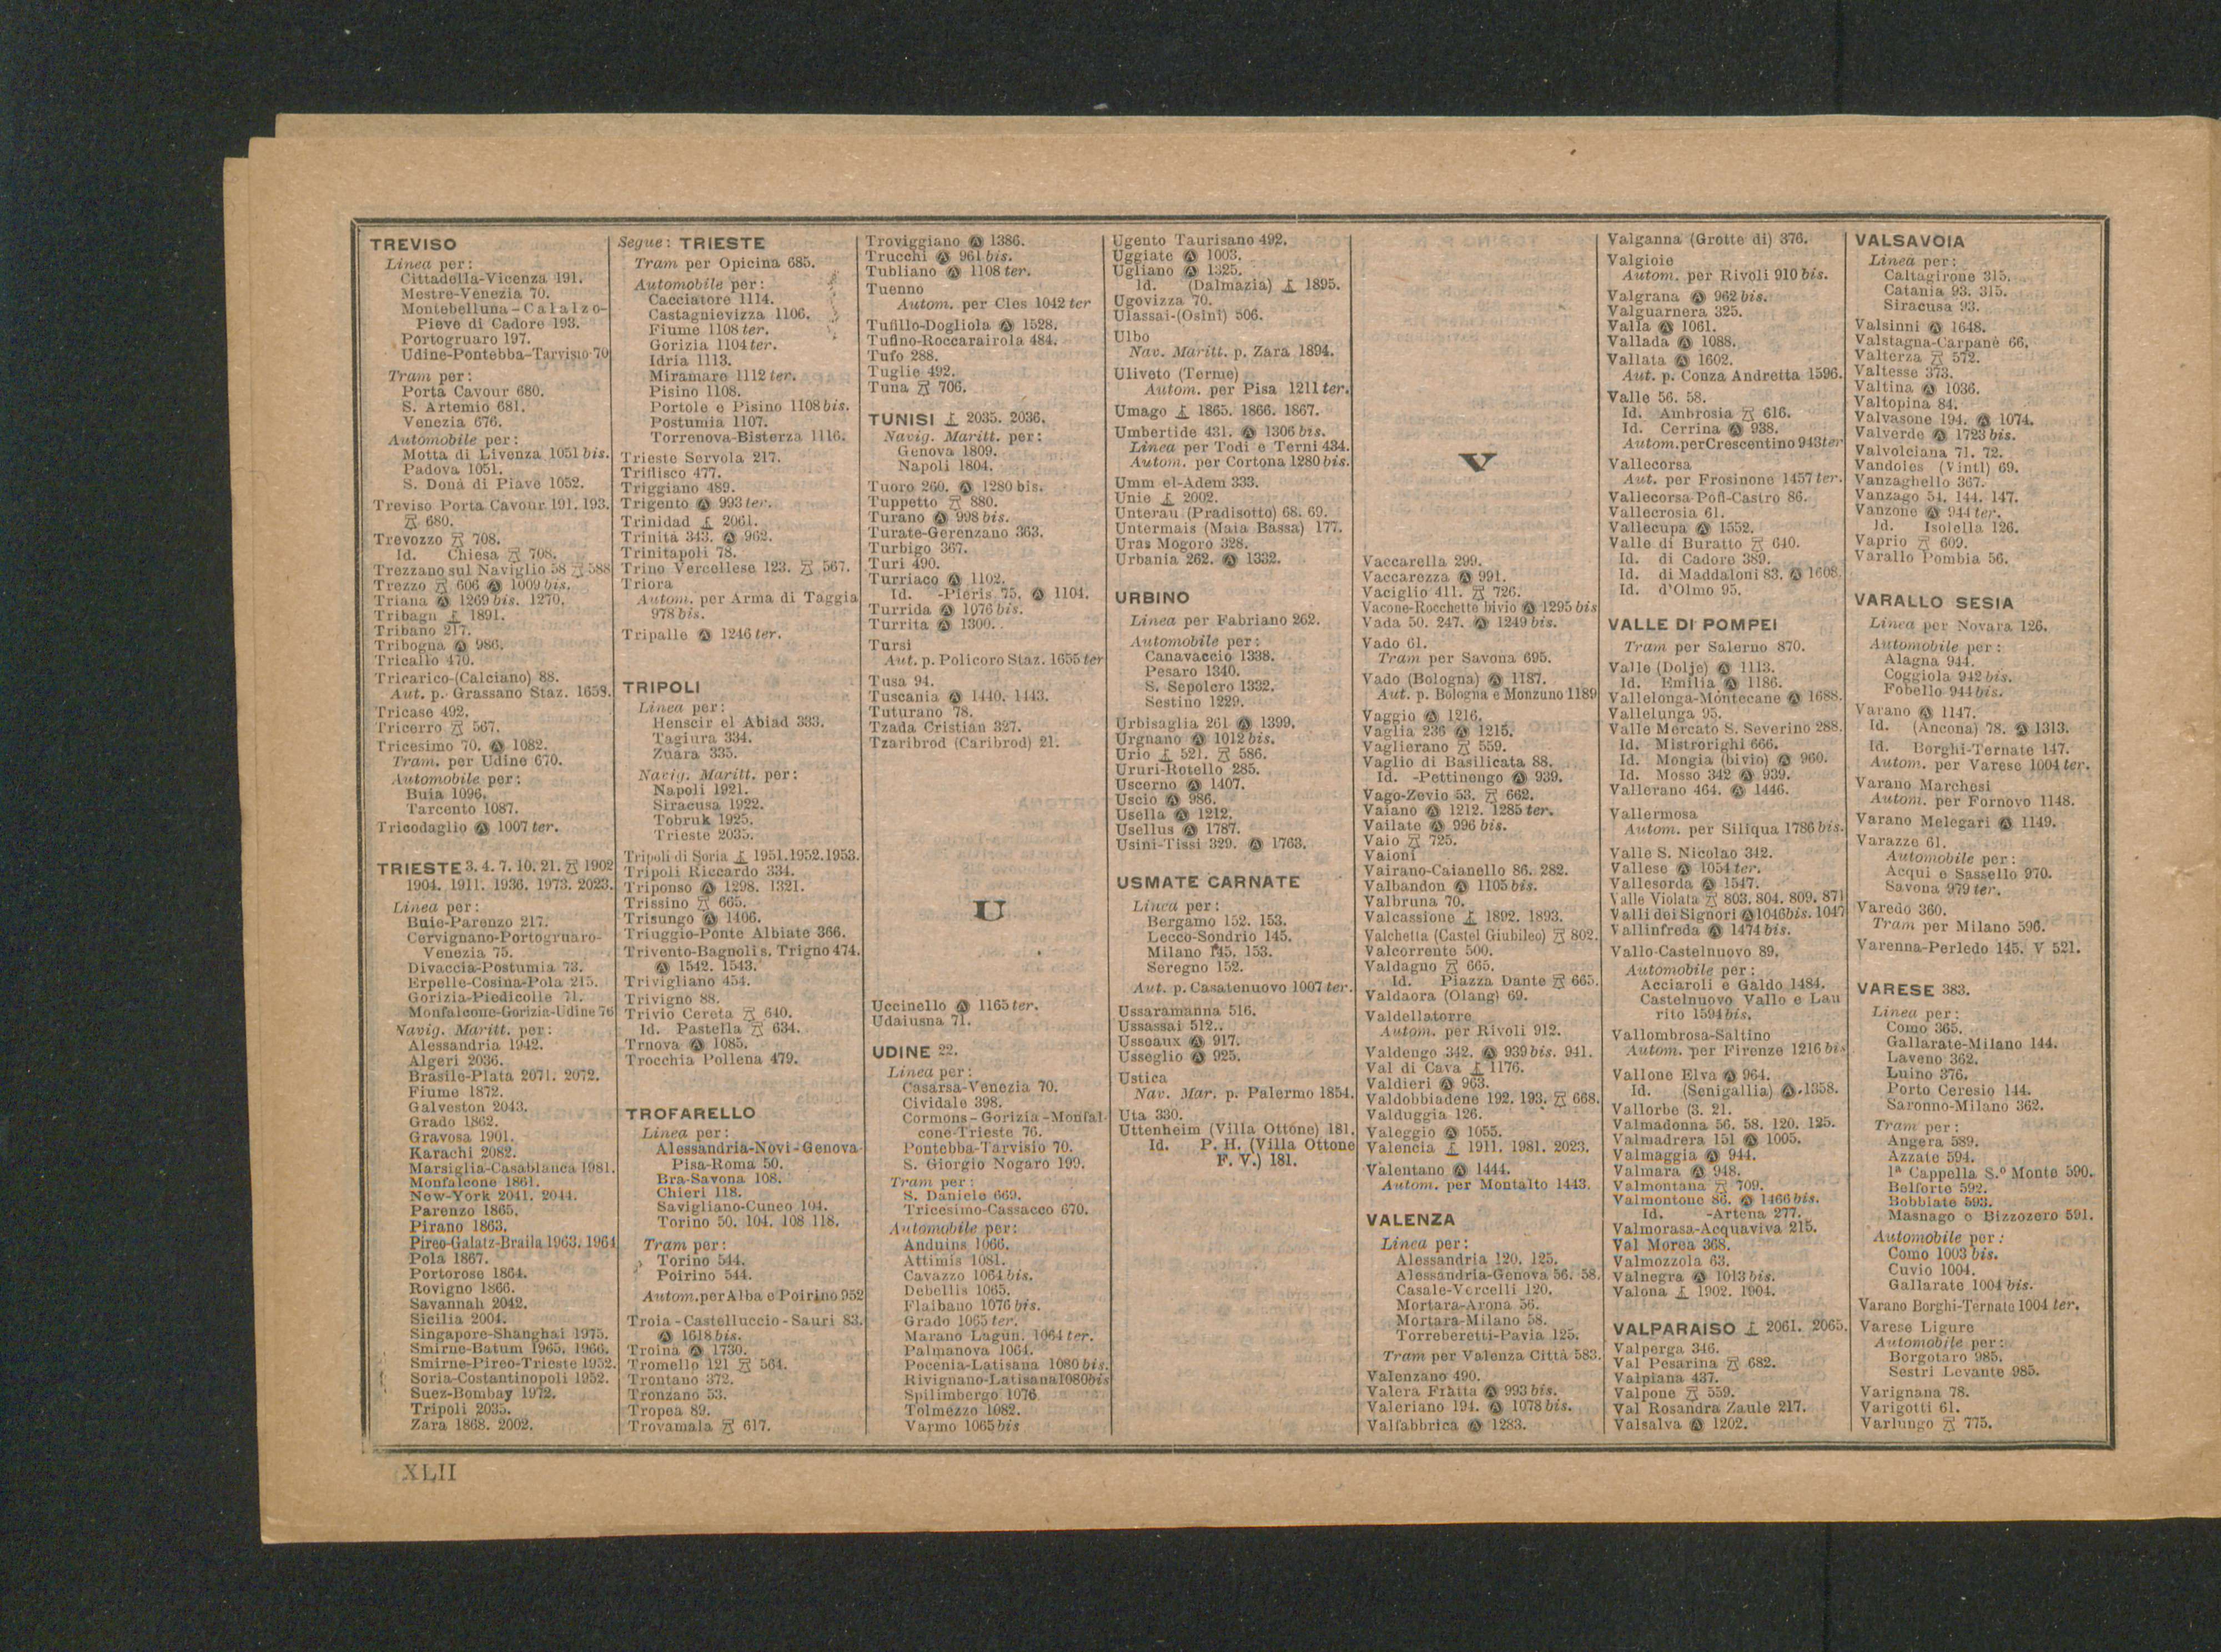 TREVISO
Linea per:
Cittadella-Vicenza 191.
Mestre-Venezia 70.
Montebelluna-Calalzo-
Pieve di Cadore 193.
Portogruaro 197.
Udine-Pontebba-Tarvisio 70
Tram per:
Porta Cavour 680.
S. Artemio 681.
Venezia 676.
Automobile per:
Motta di Livenza 1051 bis.
Padova 1051.
S. Donà di Piave 1052.
Treviso Porta Cavour 191. 193.
680.
Trevozzo 708.
Id. Chiesa 708.
Trezzano sul Naviglio 58 588
Trezzo 606 Ⓐ 1009 bis.
Triana Ⓐ 1269 bis. 1270.
Tribagn 1891.
Tribano 217.
Tribogna Ⓐ 986.
Tricallo 470.
Tricarico-(Calciano) 88.
Aut. p. Grassano Staz. 1659.
Tricase 492.
Tricerro 567.
Tricesimo 70. Ⓐ 1082.
Tram. per Udine 670.
Automobile per:
Buia 1096.
Tarcento 1087.
Tricodaglio Ⓐ 1007 ter.
TRIESTE 3. 4. 7. 10. 21. 1902
1904. 1911. 1936. 1973. 2023.
Linea per:
Buie-Parenzo 217.
Cervignano-Portogruaro-
Venezia 75.
Divaccia-Postumia 73.
Erpelle-Cosina-Pola 215.
Gorizia-Piedicolle 71.
Monfalcone-Gorizia-Udine 76
Navig. Maritt. per:
Alessandria 1942.
Algeri 2036.
Brasile-Plata 2071. 2072.
Fiume 1872.
Galveston 2043.
Grado 1862.
Gravosa 1901.
Karachi 2082.
Marsiglia-Casablanca 1981.
Monfalcone 1861.
New-York 2041. 2044.
Parenzo 1865.
Pirano 1863.
Pireo-Galatz-Braila 1963. 1964
Pola 1867.
Portorose 1864.
Rovigno 1866.
Savannah 2042.
Sicilia 2004.
Singapore-Shanghai 1975.
Smirne-Batum 1965. 1966.
Smirne-Pireo-Trieste 1952.
Soria-Costantinopoli 1952.
Suez-Bombay 1972.
Tripoli 2035.
Zara 1868. 2002.
Segue: TRIESTE
Tram per Opicina 685.
Automobile per:
Cacciatore 1114.
Castagnievizza 1106.
Fiume 1108 ter.
Gorizia 1104 ter.
Idria 1113.
Miramare 1112 ter.
Pisino 1108.
Portole e Pisino 1108 bis.
Postumia 1107.
Torrenova-Bisterza 1116.
Trieste Servola 217.
Triflisco 477.
Triggiano 489.
Trigento Ⓐ 993 ter.
Trinidad 2061.
Trinità 343. Ⓐ 962.
Trinitapoli 78.
Trino Vercellese 123. 567.
Triora
Autom. per Arma di Taggia
978 bis.
Tripalle Ⓐ 1246 ter.
TRIPOLI
Linea per:
Henscir el Abiad 333.
Tagiura 334.
Zuara 335.
Navig. Maritt. per:
Napoli 1921.
Siracusa 1922.
Tobruk 1925.
Trieste 2035.
Tripoli di Soria 1951.1952.1953.
Tripoli Riccardo 334.
Triponso Ⓐ 1298. 1321.
Trissino 665.
Trisungo Ⓐ 1406.
Triuggio-Ponte Albiate 366.
Trivento-Bagnoli s. Trigno 474.
Ⓐ 1542. 1543.
Trivigliano 454.
Trivigno 88.
Trivio Cereta 640.
Id. Pastella 634.
Trnova Ⓐ 1085.
Trocchia Pollena 479.
TROFARELLO
Linea per:
Alessandria-Novi-Genova
Pisa-Roma 50.
Bra-Savona 108.
Chieri 118.
Savigliano-Cuneo 104.
Torino 50. 104. 108 118.
Tram per:
Torino 544.
Poirino 544.
Autom.per Alba e Poirino 952
Troia-Castelluccio-Sauri 83.
Ⓐ 1618 bis.
Troina Ⓐ 1730.
Tromello 121 564.
Trontano 372.
Tronzano 53.
Tropea 89.
Trovamala 617.
Troviggiano Ⓐ 1386.
Trucchi Ⓐ 961 bis.
Tubliano Ⓐ 1108 ter.
Tuenno
Autom. per Cles 1042 ter
Tufillo-Dogliola Ⓐ 1528.
Tufino-Roccarairola 484.
Tufo 288.
Tuglie 492.
Tuna 706.
TUNISI 2035. 2036.
Navig. Maritt. per:
Genova 1809.
Napoli 1804.
Tuoro 260. Ⓐ 1280 bis.
Tuppetto 880.
Turano Ⓐ 998 bis.
Turate-Gerenzano 363.
Turbigo 367.
Turi 490.
Turriaco Ⓐ 1102.
Id. -Pieris 75. Ⓐ 1104.
Turrida Ⓐ 1076 bis.
Turrita Ⓐ 1300.
Tursi
Aut. p. Policoro Staz. 1655 ter
Tusa 94.
Tuscania Ⓐ 1440. 1443.
Tuturano 78.
Tzada Cristian 327.
Tzaribrod (Caribrod) 21.
U
Uccinello Ⓐ 1165 ter.
Udaiusna 71.
UDINE 22.
Linea per:
Casarsa-Venezia 70.
Cividale 398.
Cormons-Gorizia-Monfal-
cone-Trieste 76.
Pontebba-Tarvisio 70.
S. Giorgio Nogaro 199.
Tram per:
S. Daniele 669.
Tricesimo-Cassacco 670.
Automobile per:
Anduins 1066.
Attimis 1081.
Cavazzo 1064 bis.
Debellis 1065.
Flaibano 1076 bis.
Grado 1065 ter.
Marano Lagun. 1064 ter.
Palmanova 1064.
Pocenia-Latisana 1080 bis.
Rivignano-Latisana 1080 bis
Spilimbergo 1076
Tolmezzo 1082.
Varmo 1065 bis
Ugento Taurisano 492.
Uggiate Ⓐ 1003.
Ugliano Ⓐ 1325.
Id. (Dalmazia) 1895.
Ugovizza 70.
Ulassai-(Osini) 506.
Ulbo
Nav. Maritt. p. Zara 1894.
Uliveto (Terme)
Autom. per Pisa 1211 ter.
Umago 1865. 1866. 1867.
Umbertide 431. Ⓐ 1306 bis.
Linea per Todi e Terni 434.
Autom. per Cortona 1280 bis.
Umm el-Adem 333.
Unie 2002.
Unterau (Pradisotto) 68. 69.
Untermais (Maia Bassa) 177.
Uras Mogoro 328.
Urbania 262. Ⓐ 1332.
URBINO
Linea per Fabriano 262.
Automobile per:
Canavaccio 1338.
Pesaro 1340.
S. Sepolcro 1332.
Sestino 1229.
Urbisaglia 261 Ⓐ 1399.
Urgnano Ⓐ 1012 bis.
Urio 521. 586.
Ururi-Rotello 285.
Uscerno Ⓐ 1407.
Uscio Ⓐ 986.
Usella Ⓐ 1212.
Usellus Ⓐ 1787.
Usini-Tissi 329. Ⓐ 1763.
USMATE CARNATE
Linea per:
Bergamo 152. 153.
Lecco-Sondrio 145.
Milano 145. 153.
Seregno 152.
Aut. p. Casatenuovo 1007 ter.
Ussaramanna 516.
Ussassai 512..
Usseaux Ⓐ 917.
Usseglio Ⓐ 925.
Ustica
Nav. Mar. p. Palermo 1854.
Uta 330.
Uttenheim (Villa Ottone) 181.
Id. P. H. (Villa Ottone
F. V.) 181.
V
Vaccarella 299.
Vaccarezza Ⓐ 991.
Vaciglio 411. 726.
Vacone-Rocchette bivio Ⓐ 1295 bis
Vada 50. 247. Ⓐ 1249 bis.
Vado 61.
Tram per Savona 695.
Vado (Bologna) Ⓐ 1187.
Aut. p. Bologna e Monzuno 1189
Vaggio Ⓐ 1216.
Vaglia 236 Ⓐ 1215.
Vaglierano 559.
Vaglio di Basilicata 88.
Id. -Pettinengo Ⓐ 939.
Vago-Zevio 53. 662.
Vaiano Ⓐ 1212. 1285 ter.
Vailate Ⓐ 996 bis.
Vaio 725.
Vaioni
Vairano-Caianello 86. 282.
Valbandon Ⓐ 1105 bis.
Valbruna 70.
Valcassione 1892. 1893.
Valchetta (Castel Giubileo) 802.
Valcorrente 500.
Valdagno 665.
Id. Piazza Dante 665.
Valdaora (Olang) 69.
Valdellatorre
Autom. per Rivoli 912.
Valdengo 342. Ⓐ 939 bis. 941.
Val di Cava 1176.
Valdieri Ⓐ 963.
Valdobbiadene 192. 193. 668.
Valduggia 126.
Valeggio Ⓐ 1055.
Valencia 1911. 1981. 2023.
Valentano Ⓐ 1444.
Autom. per Montalto 1443.
VALENZA
Linea per:
Alessandria 120. 125.
Alessandria-Genova 56. 58.
Casale-Vercelli 120.
Mortara-Arona 56.
Mortara-Milano 58.
Torreberetti-Pavia 125.
Tram per Valenza Città 583.
Valenzano 490.
Valera Fratta Ⓐ 993 bis.
Valeriano 194. Ⓐ 1078 bis.
Valfabbrica Ⓐ 1283.
Valganna (Grotte di) 376.
Valgioie
Autom. per Rivoli 910 bis.
Valgrana Ⓐ 962 bis.
Valguarnera 325.
Valla Ⓐ 1061.
Vallada Ⓐ 1088.
Vallata Ⓐ 1602.
Aut. p. Conza Andretta 1596.
Valle 56. 58.
Id. Ambrosia 616.
Id. Cerrina Ⓐ 938.
Autom.per Crescentino 943 ter
Vallecorsa
Aut. per Frosinone 1457 ter.
Vallecorsa-Pofi-Castro 86.
Vallecrosia 61.
Vallecupa Ⓐ 1552.
Valle di Buratto 640.
Id. di Cadore 389.
Id. di Maddaloni 83. Ⓐ 1608.
Id. d'Olmo 95.
VALLE DI POMPEI
Tram per Salerno 870.
Valle (Dolje) Ⓐ 1113.
Id. Emilia Ⓐ 1186.
Vallelonga-Montecane Ⓐ 1688.
Vallelunga 95.
Valle Mercato S. Severino 288.
Id. Mistrorighi 666.
Id. Mongia (bivio) Ⓐ 960.
Id. Mosso 342 Ⓐ 939.
Vallerano 464. Ⓐ 1446.
Vallermosa
Autom. per Siliqua 1786 bis.
Valle S. Nicolao 342.
Vallese Ⓐ 1054 ter.
Vallesorda Ⓐ 1547.
Valle Violata 803. 804. 809. 871
Valli dei Signori Ⓐ 1046 bis. 1047
Vallinfreda Ⓐ 1474 bis.
Vallo-Castelnuovo 89.
Automobile per:
Acciaroli e Galdo 1484.
Castelnuovo Vallo e Lau
rito 1594 bis.
Vallombrosa-Saltino
Autom. per Firenze 1216 bis
Vallone Elva Ⓐ 964.
Id. (Senigallia) Ⓐ 1358.
Vallorbe (3. 21.
Valmadonna 56. 58. 120. 125.
Valmadrera 151 Ⓐ 1005.
Valmaggia Ⓐ 944.
Valmara Ⓐ 948.
Valmontana 709.
Valmontone 86. Ⓐ 1466 bis.
Id. -Artena 277.
Valmorasa-Acquaviva 215.
Val Morea 368.
Valmozzola 63.
Valnegra Ⓐ 1013 bis.
Valona 1902. 1904.
VALPARAISO 2061. 2065.
Valperga 346.
Val Pesarina 682.
Valpiana 437.
Valpone 559.
Val Rosandra Zaule 217.
Valsalva Ⓐ 1202.
VALSAVOIA
Linea per:
Caltagirone 315.
Catania 93. 315.
Siracusa 93.
Valsinni Ⓐ 1648.
Valstagna-Carpanè 66.
Valterza 572.
Valtesse 373.
Valtina Ⓐ 1036.
Valtopina 84.
Valvasone 194. Ⓐ 1074.
Valverde Ⓐ 1723 bis.
Valvolciana 71. 72.
Vandoies (Vintl) 69.
Vanzaghello 367.
Vanzago 54. 144. 147.
Vanzone Ⓐ 944 ter.
Id. Isolella 126.
Vaprio 609.
Varallo Pombia 56.
VARALLO SESIA
Linea per Novara 126.
Automobile per:
Alagna 944.
Coggiola 942 bis.
Fobello 944 bis.
Varano Ⓐ 1147.
Id. (Ancona) 78. Ⓐ 1313.
Id. Borghi-Ternate 147.
Autom. per Varese 1004 ter.
Varano Marchesi
Autom. per Fornovo 1148.
Varano Melegari Ⓐ 1149.
Varazze 61.
Automobile per:
Acqui e Sassello 970.
Savona 979 ter.
Varedo 360.
Tram per Milano 596.
Varenna-Perledo 145. V 521.
VARESE 383.
Linea per:
Como 365.
Gallarate-Milano 144.
Laveno 362.
Luino 376.
Porto Ceresio 144.
Saronno-Milano 362.
Tram per:
Angera 589.
Azzate 594.
1ª Cappella S.º Monte 590.
Belforte 592.
Bobbiate 593.
Masnago e Bizzozero 591.
Automobile per:
Como 1003 bis.
Cuvio 1004.
Gallarate 1004 bis.
Varano Borghi-Ternate 1004 ter.
Varese Ligure
Automobile per:
Borgotaro 985.
Sestri Levante 985.
Varignana 78.
Varigotti 61.
Varlungo 775.
XLII